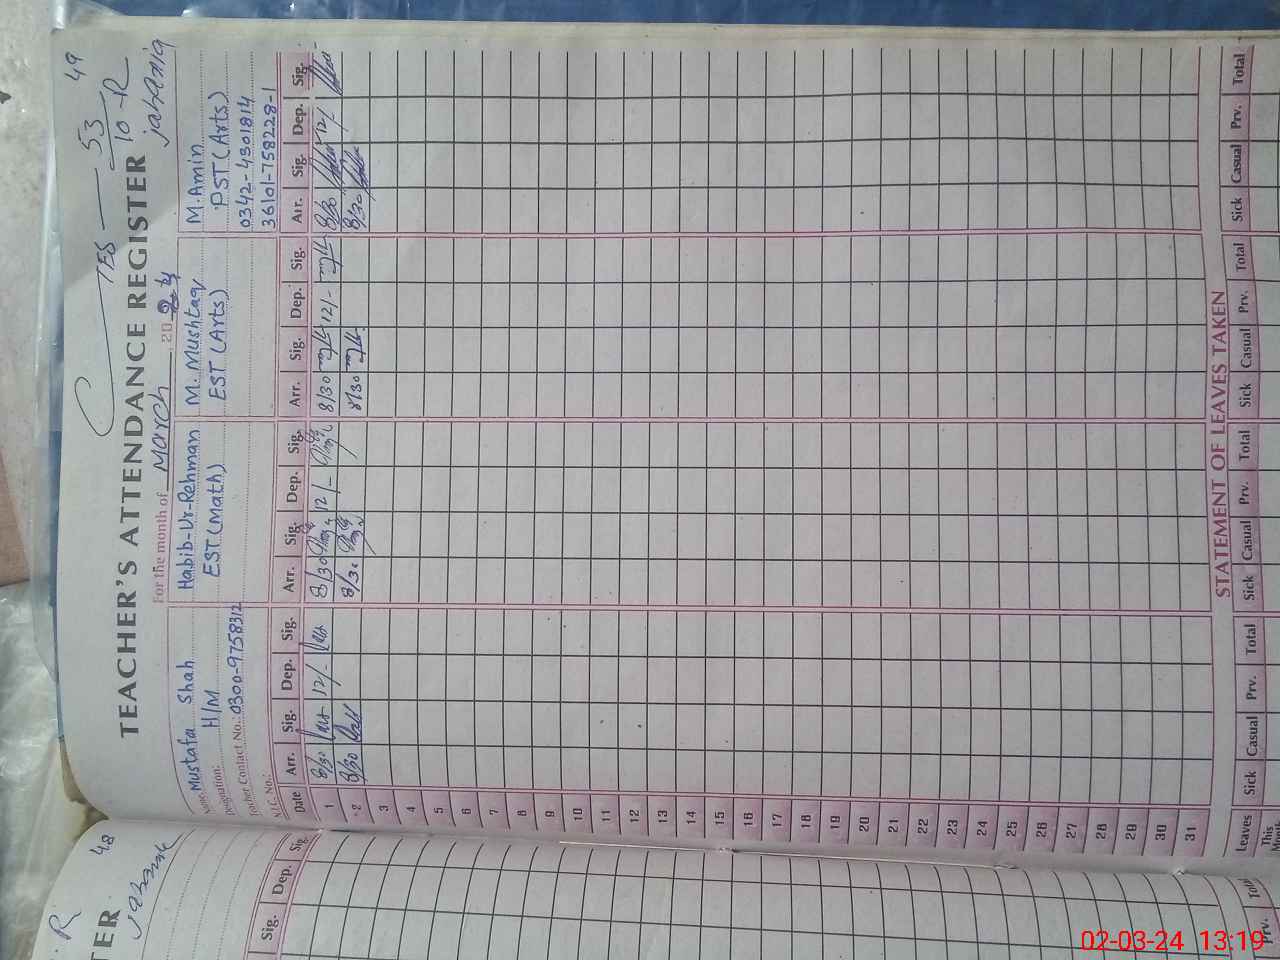 TES — 53 49
10-R
jahania
TEACHER'S ATTENDANCE REGISTER
For the month of March, 2024
Name: Mustafa Shah Habib-Ur-Rehman M. Mushtaq M. Amin
Designation: H/M EST (Math) EST (Arts) PST (Arts)
Teacher Contact No.: 0300-9758312 0342-4301814
N.I.C. No.: 36101-758228-1
Date Arr. Sig. Dep. Sig. Arr. Sig. Dep. Sig. Arr. Sig. Dep. Sig. Arr. Sig. Dep. Sig.
1 8/30 12/- 8/30 12/- 8/30 12/- 8/30 12/
2 8/30 8/30 8/30 8/30
3
4
5
6
7
8
9
10
11
12
13
14
15
16
17
18
19
20
21
22
23
24
25
26
27
28
29
30
31
STATEMENT OF LEAVES TAKEN
Leaves Sick Casual Prv. Total Sick Casual Prv. Total Sick Casual Prv. Total Sick Casual Prv. Total
This
R 48
TER
Sig. Dep. Sig.
Prv. Total
02-03-24 13:19